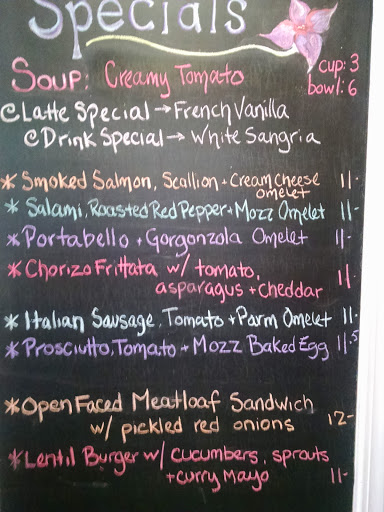 Specials
Soup: Creamy Tomato cup: 3
bowl: 6
@Latte Special → French Vanilla
@Drink Special → White Sangria
* Smoked Salmon, Scallion + Cream Cheese 11-
omelet
* Salami, Roasted Red Pepper + Mozz Omelet 11-
* Portabello + Gorgonzola Omelet 11-
* Chorizo Frittata w/ tomato,
asparagus + cheddar 11-
* Italian Sausage, Tomato + Parm Omelet 11-
* Prosciutto, Tomato + Mozz Baked Egg 11.5
* Open Faced Meatloaf Sandwich
w/ pickled red onions 12-
* Lentil Burger w/ cucumbers, sprouts
+ curry Mayo 11-